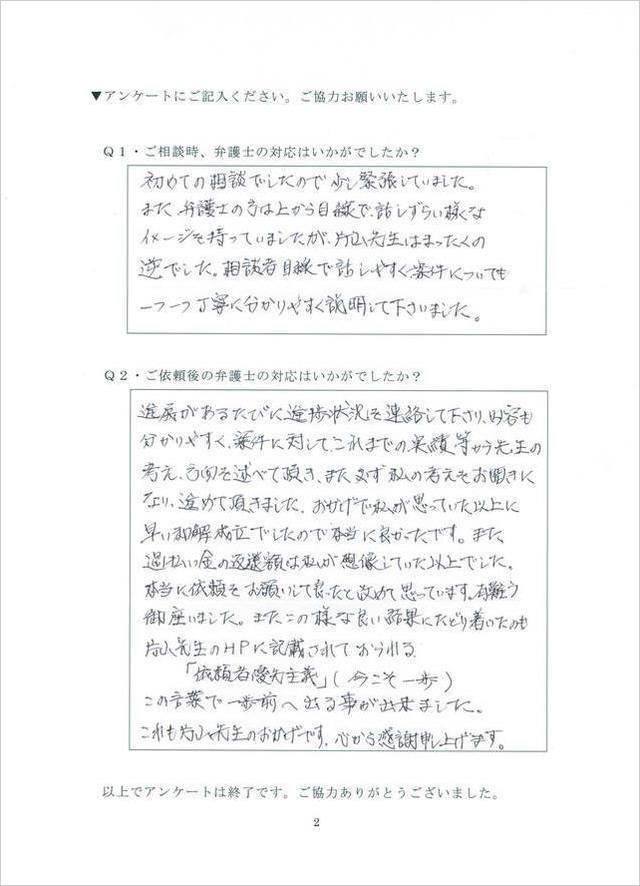 ▼アンケートにご記入ください。ご協力お願いいたします。
Q1・ご相談時、弁護士の対応はいかがでしたか?
初めての相談でしたので少し緊張していました。
また弁護士の方は上から目線で、話しずらい様な
イメージを持っていましたが、片山先生はまったくの
逆でした。相談者目線で話しやすく案件についても
一つ一つ丁寧に分かりやすく説明して下さいました。
Q2・ご依頼後の弁護士の対応はいかがでしたか?
進展があるたびに、進捗状況を連絡して下さり、内容も
分かりやすく、案件に対して、これまでの実績等から先生の
考え、方向を述べて頂き、またまず私の考えをお聞きに
なり、進めて頂きました。おかげで私が思っていた以上に
早い和解成立でしたので本当に良かったです。また
過払い金の返還額は私が想像していた以上でした。
本当に依頼をお願いして良かったと改めて思っています。有難う
御座いました。またこの様な良い結果にたどり着いたのも
片山先生のHPに記載されておられる
「依頼者優先主義」(今こそ一歩)
この言葉で一歩前へ出る事が出来ました。
これも片山先生のおかげです。心から感謝申し上げます。
以上でアンケートは終了です。ご協力ありがとうございました。
2